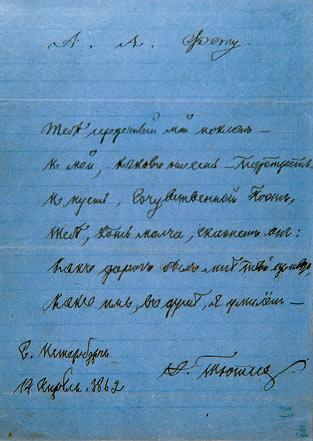 А. А. Фету.
Тебѣ сердечный мой поклонъ —
И мой, каковъ ни есть — портретъ,
И пусть, сочувственный Поэтъ,
Тебѣ, хоть молча, скажетъ онъ:
Какъ дорогъ былъ мнѣ твой привѣтъ,
Какъ имъ, въ душѣ, я умилёнъ —
С. Петербургъ
14 Апрѣль. 1862
Ѳ. Тютчевъ